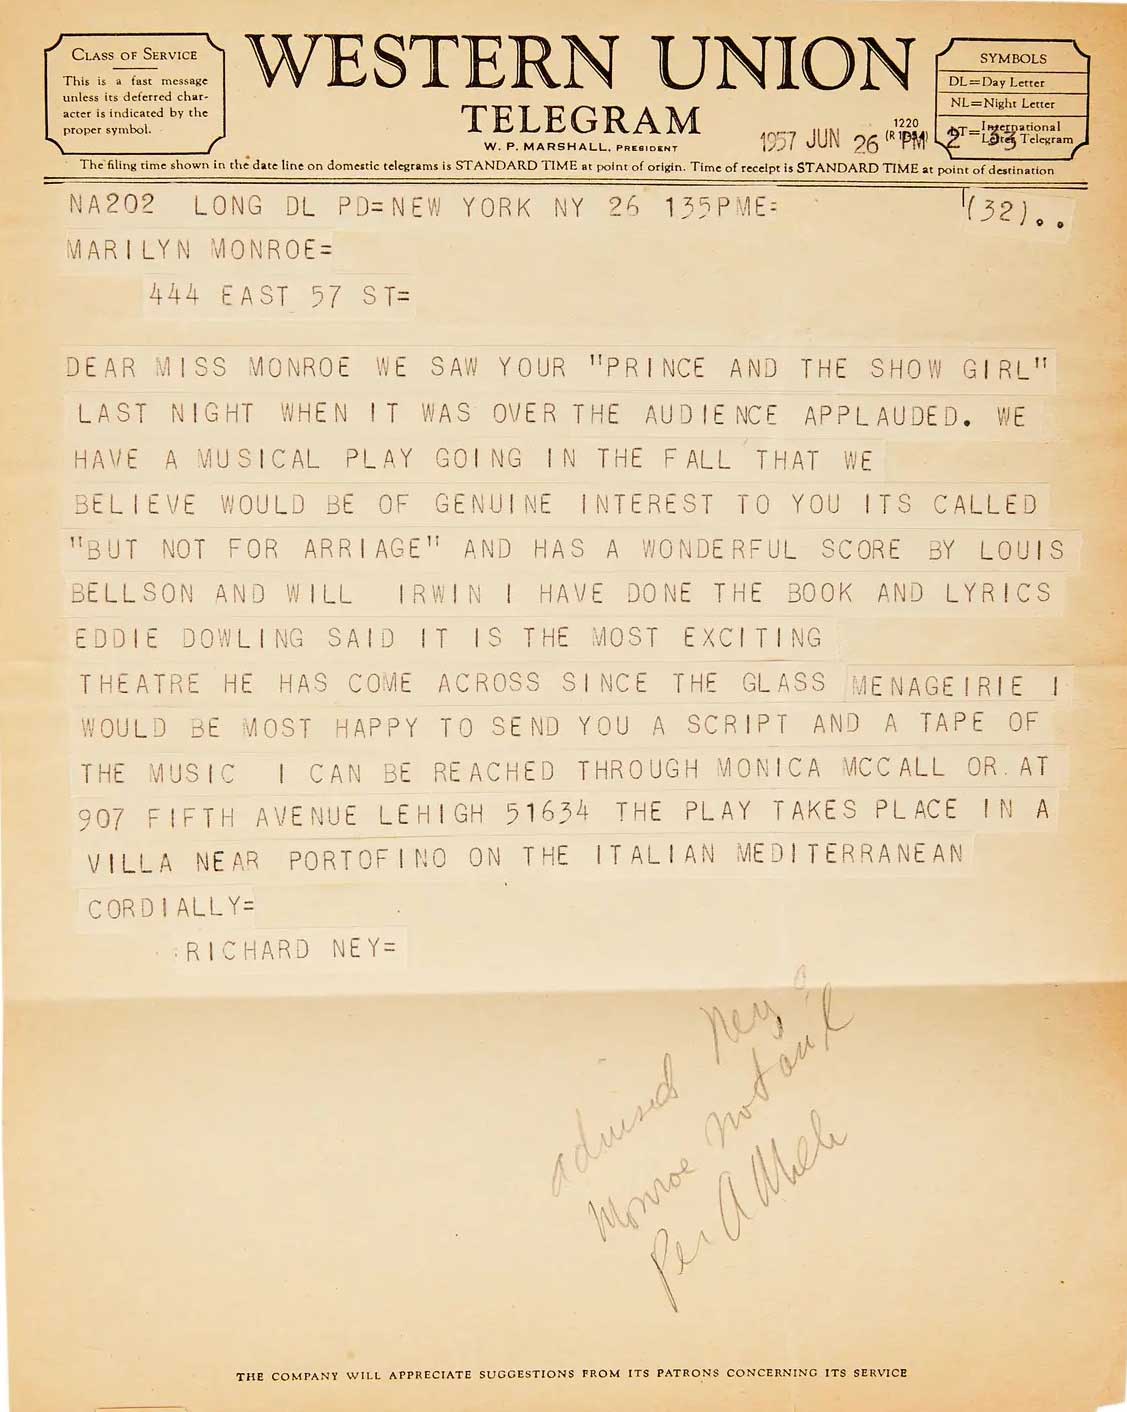 CLASS OF SERVICE
This is a fast message
unless its deferred char-
acter is indicated by the
proper symbol.
WESTERN UNION
TELEGRAM
W. P. MARSHALL, PRESIDENT
1220
1957 JUN 26 PM 2 33
SYMBOLS
DL=Day Letter
NL=Night Letter
LT=International Letter Telegram
The filing time shown in the date line on domestic telegrams is STANDARD TIME at point of origin. Time of receipt is STANDARD TIME at point of destination
NA202 LONG DL PD=NEW YORK NY 26 135PME= (32)..
MARILYN MONROE=
444 EAST 57 ST=
DEAR MISS MONROE WE SAW YOUR "PRINCE AND THE SHOW GIRL"
LAST NIGHT WHEN IT WAS OVER THE AUDIENCE APPLAUDED. WE
HAVE A MUSICAL PLAY GOING IN THE FALL THAT WE
BELIEVE WOULD BE OF GENUINE INTEREST TO YOU ITS CALLED
"BUT NOT FOR ARRIAGE" AND HAS A WONDERFUL SCORE BY LOUIS
BELLSON AND WILL IRWIN I HAVE DONE THE BOOK AND LYRICS
EDDIE DOWLING SAID IT IS THE MOST EXCITING
THEATRE HE HAS COME ACROSS SINCE THE GLASS MENAGEIRIE I
WOULD BE MOST HAPPY TO SEND YOU A SCRIPT AND A TAPE OF
THE MUSIC I CAN BE REACHED THROUGH MONICA MCCALL OR AT
907 FIFTH AVENUE LEHIGH 51634 THE PLAY TAKES PLACE IN A
VILLA NEAR PORTOFINO ON THE ITALIAN MEDITERRANEAN
CORDIALLY=
RICHARD NEY=
advised Ney
Monroe not avail
Per A
THE COMPANY WILL APPRECIATE SUGGESTIONS FROM ITS PATRONS CONCERNING ITS SERVICE